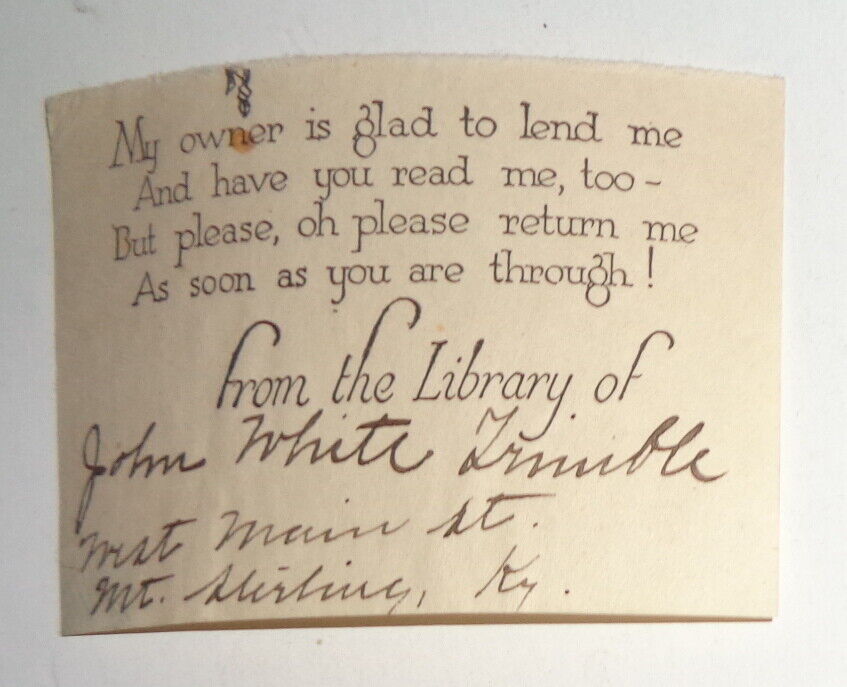 My owner is glad to lend me
And have you read me, too -
But please, oh please return me
As soon as you are through!
from the Library of
John White Trimble
West Main St.
Mt. Sterling, Ky.